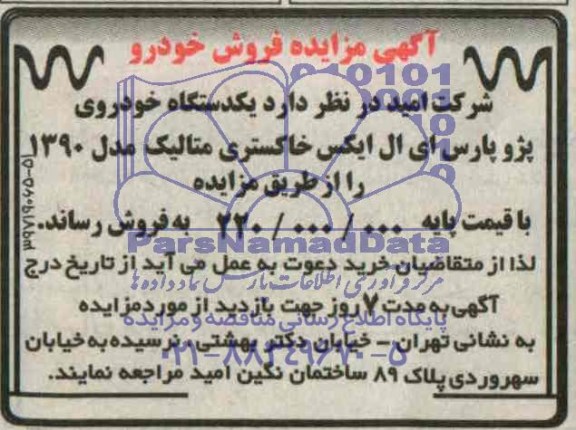 آگهی مزایده فروش خودرو
شرکت امید در نظر دارد یکدستگاه خودروی
پژو پارس ای ال ایکس خاکستری متالیک مدل ۱۳۹۰
را از طریق مزایده
با قیمت پایه ۲۲۰/۰۰۰/۰۰۰ به فروش رساند.
لذا از متقاضیان خرید دعوت به عمل می آید از تاریخ درج
آگهی به مدت ۷ روز جهت بازدید از مورد مزایده
به نشانی تهران - خیابان دکتر بهشتی، نرسیده به خیابان
سهروردی پلاک ۸۹ ساختمان نگین امید مراجعه نمایند.
ParsNamadData
مرکز فرآوری اطلاعات پارس نماد داده ها
پایگاه اطلاع رسانی مناقصه و مزایده
۰۲۱-۸۸۳۴۹۶۷۰-۵